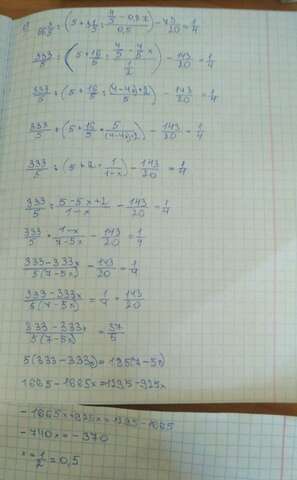 66 3/5 : (5 + 3 1/5 : (4/5 - 0,8x)/0,5) - 7 3/20 = 1/4
333/5 : (5 + 16/5 : (4/5 - 4/5 x)/(1/2)) - 143/20 = 1/4
333/5 : (5 + 16/5 : (4-4x)·2/5) - 143/20 = 1/4
333/5 : (5 + 16/5 · 5/((4-4x)·2)) - 143/20 = 1/4
333/5 : (5 + 2 · 1/(1-x)) - 143/20 = 1/4
333/5 : (5-5x+2)/(1-x) - 143/20 = 1/4
333/5 · (1-x)/(7-5x) - 143/20 = 1/4
(333-333x)/(5(7-5x)) - 143/20 = 1/4
(333-333x)/(5(7-5x)) = 1/4 + 143/20
(333-333x)/(5(7-5x)) = 37/5
5(333-333x) = 185(7-5x)
1665 - 1665x = 1295 - 925x
-1665x + 925x = 1295 - 1665
-740x = -370
x = 1/2 = 0,5